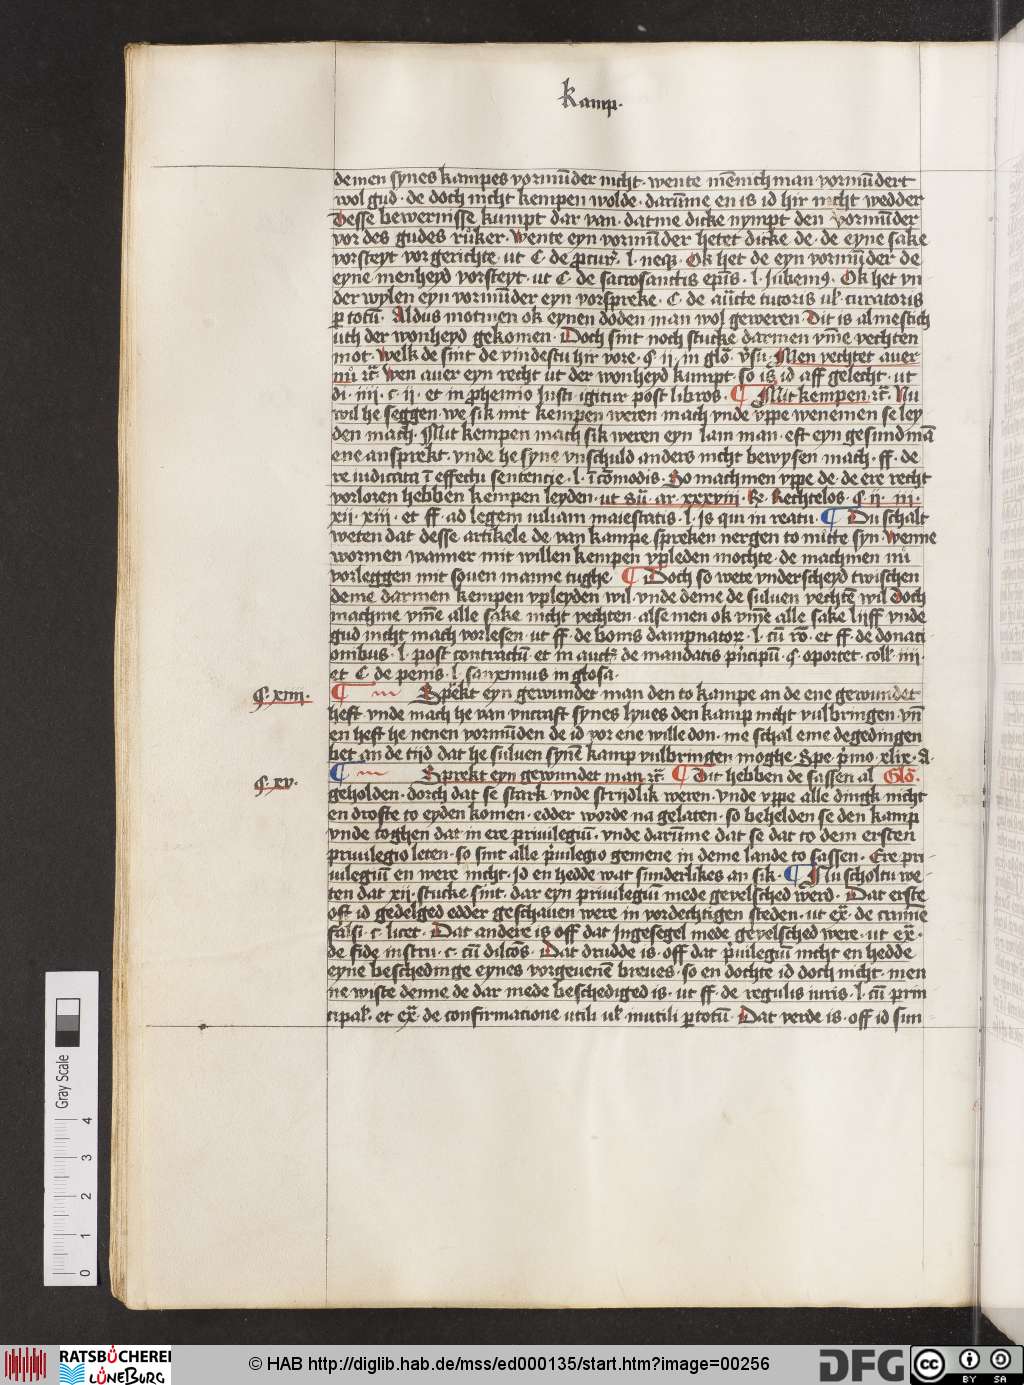 kamp.
demen synes kampes vormūder nicht · wente mēnich man vormūdert
wol gud · de doch nicht kempen wolde · darūme en is id hir nicht wedder
Desse bewernisse kumpt dar van · datme dicke nympt den vormūder
vor des gudes růker · wente eyn vormūder hetet dicke de · de eyne sake
vorsteyt vor gerichte · ut C · de · l · neq; Ok het de eyn vormūder de
eyne menheyd vorsteyt · ut C · de sacrosanctis ep̄is · l · Jubemꝰ · Ok het yn
der wylen eyn vormūder eyn vorspreke · C · de tutoris ul' curatoris
p totū · Aldus motmen ok eynen doden man wol geweren Dit is almestich
uth der wonheyd gekomen · Doch sint noch stucke darmen ym̄e vechten
mot · Welk de sint de vindestu hir vore · § ij · in glo' · Men vechtet auer
nů rc̄ · Wen auer eyn recht ut der wonheyd kumpt · so is id aff gelecht · ut
di · iiij · c · ij · et in phemio Justi · igitur post libros · ¶ Mit kempen rc̄ · Nu
wil he seggen · we sik mit kempen weren mach vnde vppe wenemen se ley
den mach · Mit kempen mach sik weren eyn lam man · eft eyn gesund mā
ene ansprekt · vnde he syne vnschuld anders nicht bewysen mach · ff · de
re iudicata ī effectu sentencie · l · ī cōmodis · So machmen vppe de · de ere recht
vorloren hebben kempen leyden · ut sū · ar · xxxviij · Rechtelos § ij · iij ·
xij · xiij · et ff · ad legem iuliam maiestatis · l · Js qui in reatu · ¶ Du schalt
weten dat desse artikele de van kampe spreken nergen to nůtte syn · wenne
wormen wanner mit willen kempen vpleden mochte · de machmen nů
vorleggen mit souen manne tughe ¶ Doch so wete vnderscheyd twischen
deme darmen kempen vpleyden wil · vnde deme de suluen vechtē wil Doch
machme vm̄e alle sake nicht vechten · alse men ok vm̄e alle sake lijff vnde
gud nicht mach vorlesen · ut ff · de bonis dampnator · l · cū ro · et ff · de donaci
onibus · l · post contractū · et in auct · de mandatis pincipū · § oportet · coll · iij ·
et C · de penis · l · sanximus in glosa ·
§ · xiiij · ¶ Sprekt eyn gewundet man den to kampe an de ene gewundet
heft vnde mach he van vncraft synes lyues den kamp nicht vulbringen · vn̄
en heft he nenen vormūden de id vor ene wille don · me schal eme degedingen
bet an de tijd dat he suluen synē kamp vulbringen moghe · Spe pimo · xlix · d ·
§ · xv · ¶ Sprekt eyn gewundet man rc̄ ¶ Dit hebben de sassen al Glo' ·
geholden · dorch dat se stark vnde strijdlik weren · vnde vppe alle dingk nicht
en drofte to eyden komen · edder worde na gelaten · so behelden se den kamp
vnde toghen dat in ere priuilegiū · vnde darūme dat se dat to dem ersten
priuilegio leten · so sint alle piuilegio gemene in deme lande to sassen · Ere pri
uilegiū en were nicht · Jd en hedde wat sunderlikes an sik · ¶ Nu scholtu we
ten dat xij · stucke sint · dar eyn priuilegiū mede gevelsched werd · Dat erste
oft id gedelged edder geschauen were in vordechtigen steden · ut ex̄ · de crimīe
falsi · c · licet · Dat andere is off dat Jngesegel mede gevelsched were · ut ex̄ ·
de fide instru · c · cū dilcōs · Dat drudde is · off dat piuilegiū nicht en hedde
eyne beschedinge eynes vorgeuenē breues · so en dochte id doch nicht · men
ne wiste denne de dar mede beschediged is · ut ff · de regulis iuris · l · cū prin
cipal' · et ex̄ · de confirmacione utili ul' inutili p totū · Dat verde is · off id sun
Gray Scale
0 1 2 3 4
RATSBÜCHEREI
LÜNEBURG
© HAB http://diglib.hab.de/mss/ed000135/start.htm?image=00256
DFG
cc
BY SA